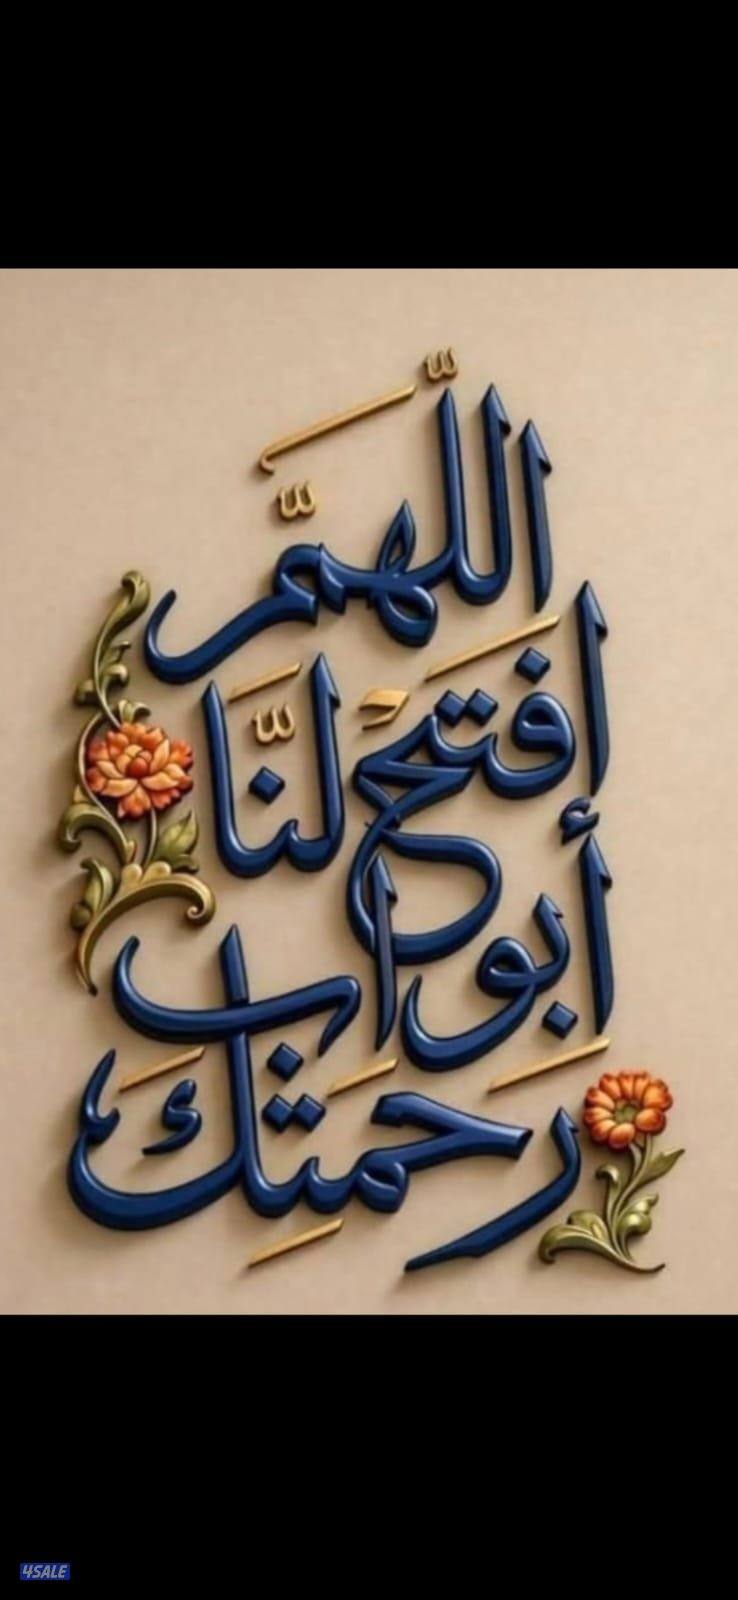 اللّهمَّ
افتَحْ لنَّا
أَبوابِ
رحمتِكَ
4SALE